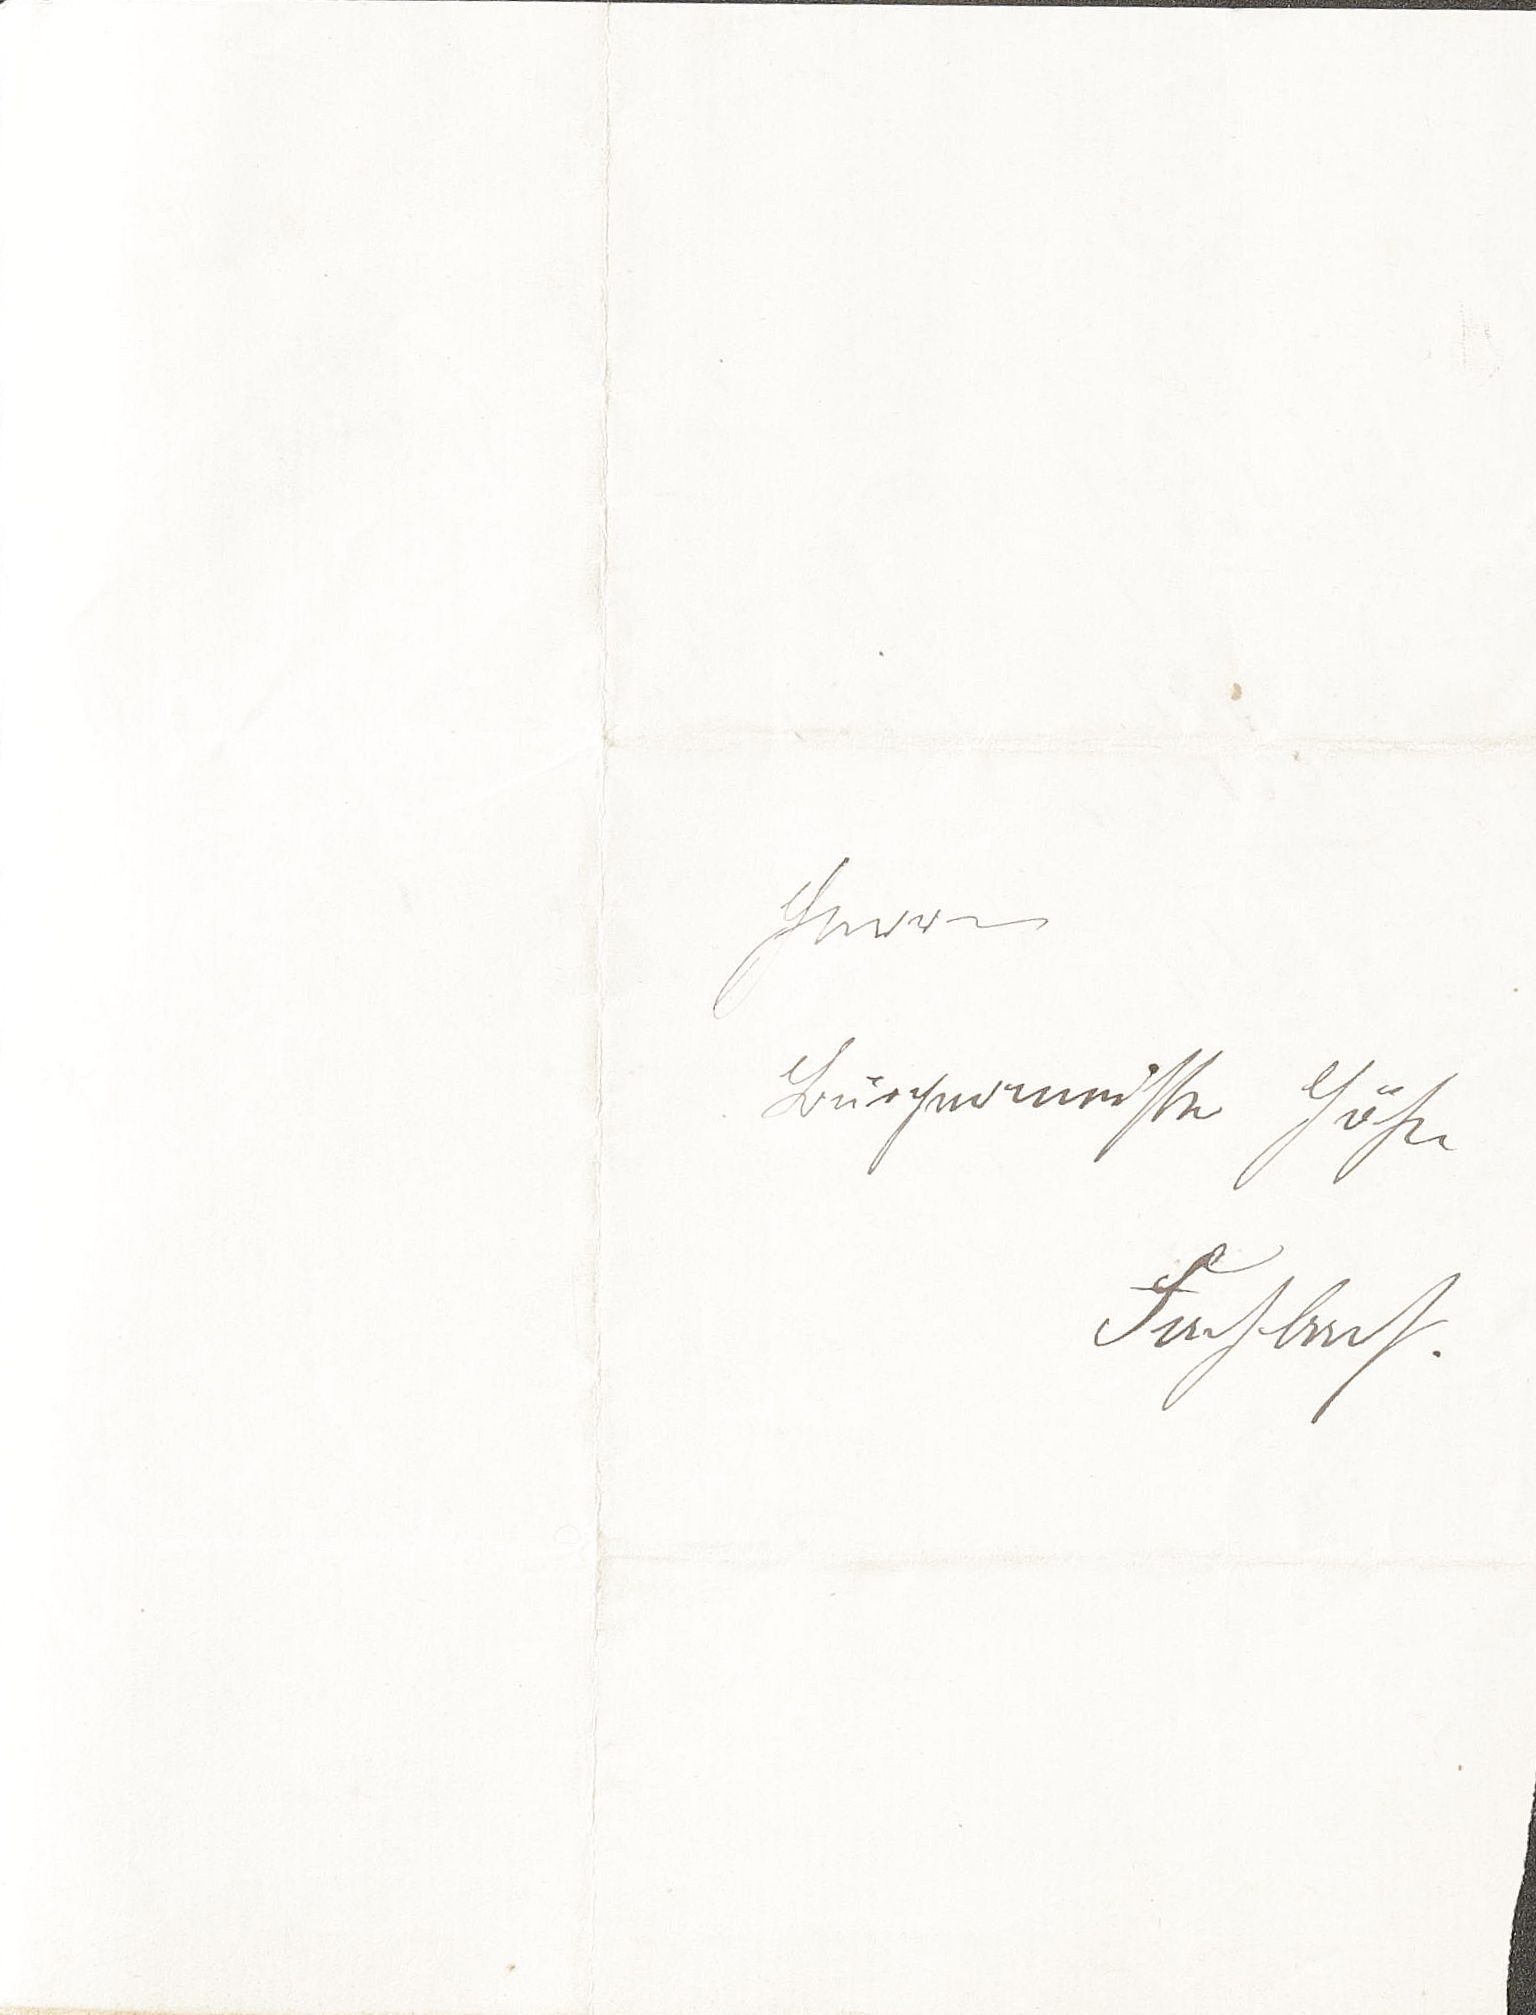 Herrn
Bürgermeister Höhn
Fachbach.